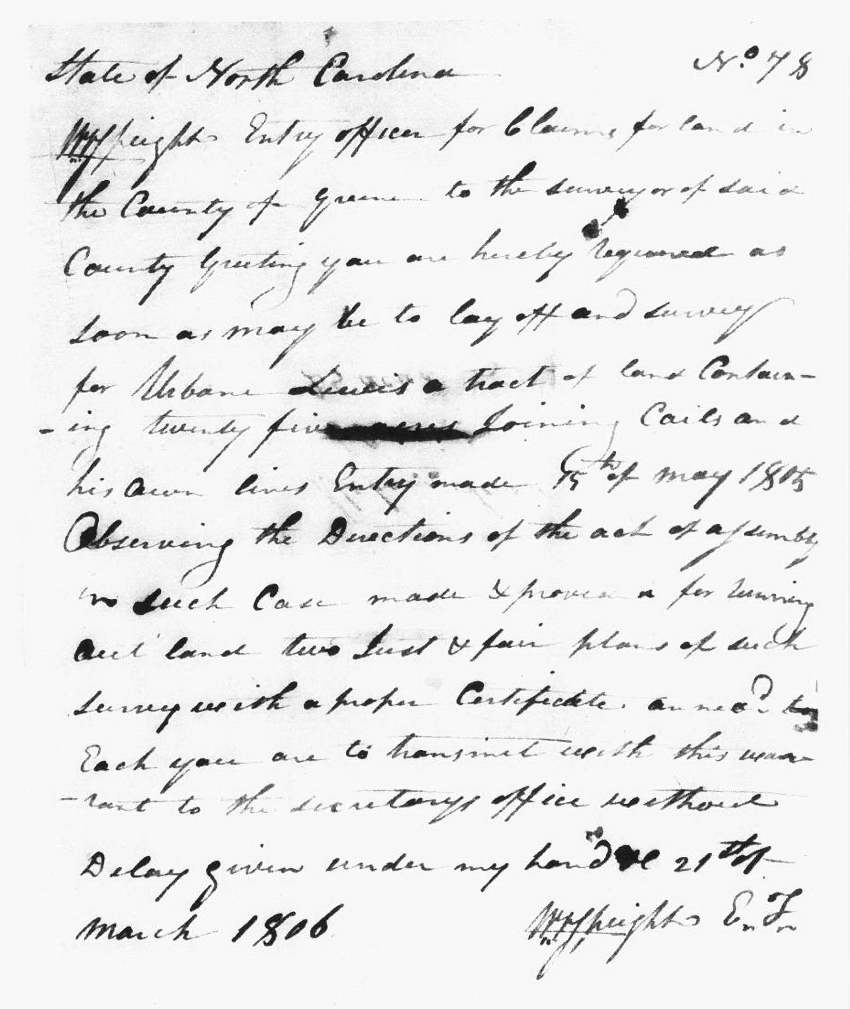 State of North Carolina No. 78
Wm Speight Entry officer for Claims for land in
the County of Greene to the surveyor of said
County Greeting you are hereby required as
soon as may be to lay off and survey
for Urbane Lewis a tract of land Contain-
-ing twenty five acres Joining Cails and
his own lines Entry made 15th of may 1805
Observing the Directions of the act of assembly
in such Case made & provid a for running
out land two Just & fair plans of such
survey with a proper Certificate annexd to
Each you are to transmit with this warr
-rant to the secretarys office without
Delay given under my hand 21st of
march 1806 Wm Speight E. T.